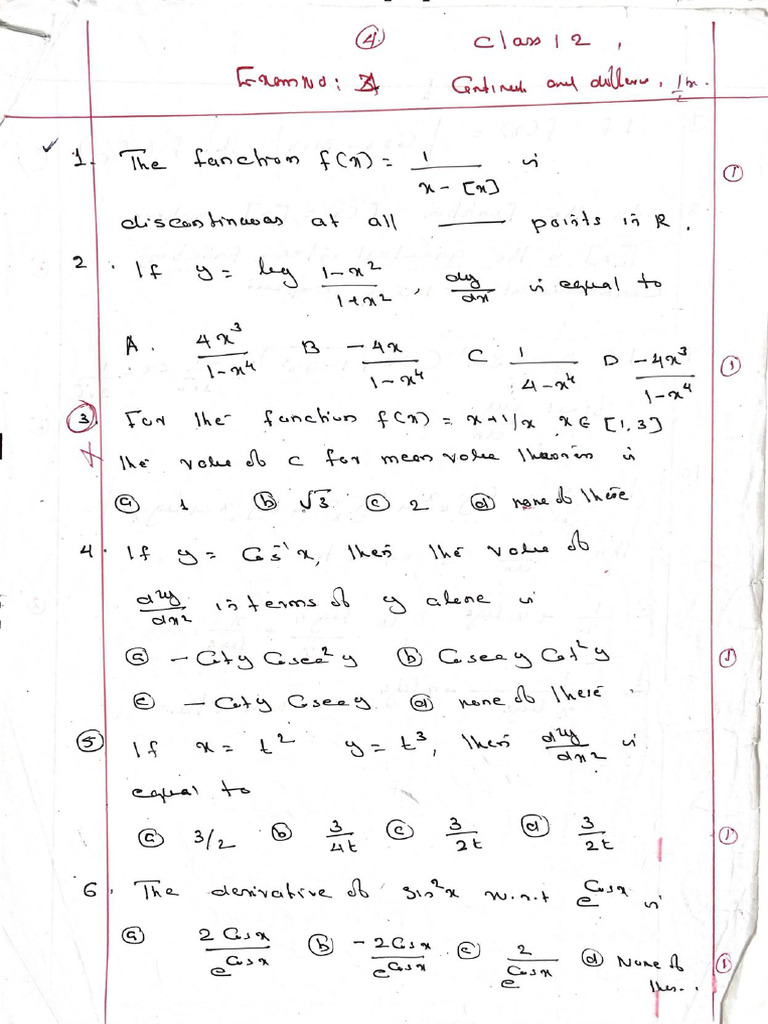 ④ Class 12,
Exam No: Continuit and differe, 1hr.
1. The function f(x) = 1/(x - [x]) is ①
discontinuous at all ____ points in R.
2. If y = log (1-x²)/(1+x²), dy/dx is equal to
A. 4x³/(1-x⁴) B -4x/(1-x⁴) C 1/(4-x⁴) D -4x³/(1-x⁴) ①
③. For the function f(x) = x+1/x x∈ [1,3]
the value of c for mean value theorem is
ⓐ 1 ⓑ √3 ⓒ 2 ⓓ none of these
4. If y = Cos⁻¹x, then the value of
d²y/dx² in terms of y alone is
ⓐ -Coty Cosec²y ⓑ Cosecy Cot²y ①
ⓒ -Coty Cosecy ⓓ none of these.
⑤ If x = t² y = t³, then d²y/dx² is
equal to
ⓐ 3/2 ⓑ 3/4t ⓒ 3/2t ⓓ 3/2t ①
6. The derivative of sin²x w.r.t e^Cosx is
ⓐ 2Cosx/e^Cosx ⓑ -2Cosx/e^Cosx ⓒ 2/e^Cosx ⓓ None of ①
thes..